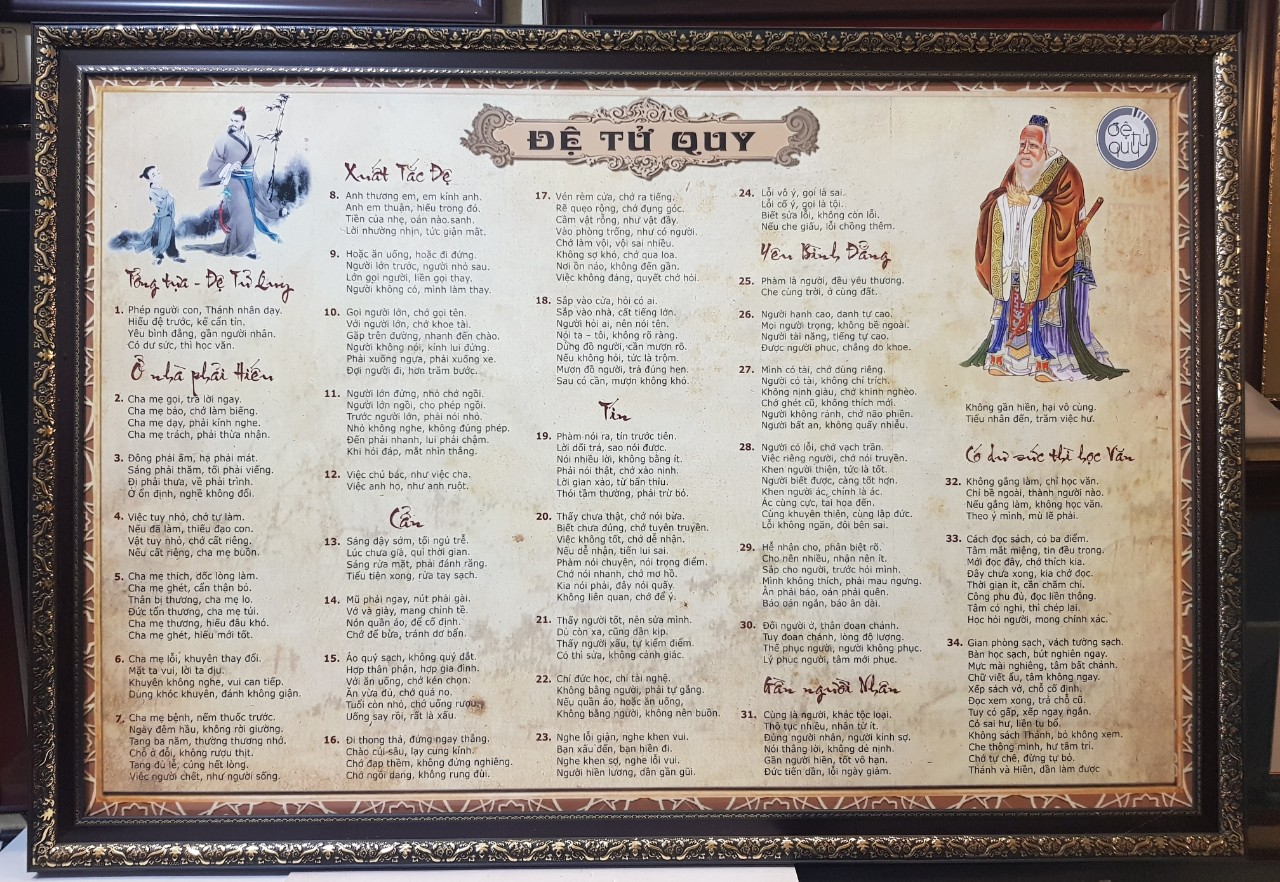 ĐỆ TỬ QUY
Đệ tử quy
Tổng tựa - Đệ Tử Quy
1. Phép người con, Thánh nhân dạy.
Hiếu đệ trước, kế cẩn tín.
Yêu bình đẳng, gần người nhân.
Có dư sức, thì học văn.
Ở nhà phải Hiếu
2. Cha mẹ gọi, trả lời ngay.
Cha mẹ bảo, chớ làm biếng.
Cha mẹ dạy, phải kính nghe.
Cha mẹ trách, phải thừa nhận.
3. Đông phải ấm, hạ phải mát.
Sáng phải thăm, tối phải viếng.
Đi phải thưa, về phải trình.
Ở ổn định, nghề không đổi.
4. Việc tuy nhỏ, chớ tự làm.
Nếu đã làm, thiếu đạo con.
Vật tuy nhỏ, chớ cất riêng.
Nếu cất riêng, cha mẹ buồn.
5. Cha mẹ thích, dốc lòng làm.
Cha mẹ ghét, cẩn thận bỏ.
Thân bị thương, cha mẹ lo.
Đức tổn thương, cha mẹ tủi.
Cha mẹ thương, hiếu đâu khó.
Cha mẹ ghét, hiếu mới tốt.
6. Cha mẹ lỗi, khuyên thay đổi.
Mặt ta vui, lời ta dịu.
Khuyên không nghe, vui can tiếp.
Dùng khóc khuyên, đánh không giận.
7. Cha mẹ bệnh, nếm thuốc trước.
Ngày đêm hầu, không rời giường.
Tang ba năm, thường thương nhớ.
Chỗ ở đổi, không rượu thịt.
Tang đủ lễ, cúng hết lòng.
Việc người chết, như người sống.
Xuất Tắc Đệ
8. Anh thương em, em kính anh.
Anh em thuận, hiếu trong đó.
Tiền của nhẹ, oán nào sanh.
Lời nhường nhịn, tức giận mất.
9. Hoặc ăn uống, hoặc đi đứng.
Người lớn trước, người nhỏ sau.
Lớn gọi người, liền gọi thay.
Người không có, mình làm thay.
10. Gọi người lớn, chớ gọi tên.
Với người lớn, chớ khoe tài.
Gặp trên đường, nhanh đến chào.
Người không nói, kính lui đứng.
Phải xuống ngựa, phải xuống xe.
Đợi người đi, hơn trăm bước.
11. Người lớn đứng, nhỏ chớ ngồi.
Người lớn ngồi, cho phép ngồi.
Trước người lớn, phải nói nhỏ.
Nhỏ không nghe, không đúng phép.
Đến phải nhanh, lui phải chậm.
Khi hỏi đáp, mắt nhìn thẳng.
12. Việc chú bác, như việc cha.
Việc anh họ, như anh ruột.
Cẩn
13. Sáng dậy sớm, tối ngủ trễ.
Lúc chưa già, quí thời gian.
Sáng rửa mặt, phải đánh răng.
Tiểu tiện xong, rửa tay sạch.
14. Mũ phải ngay, nút phải gài.
Vớ và giày, mang chỉnh tề.
Nón quần áo, để cố định.
Chớ để bừa, tránh dơ bẩn.
15. Áo quý sạch, không quý đắt.
Hợp thân phận, hợp gia đình.
Với ăn uống, chớ kén chọn.
Ăn vừa đủ, chớ quá no.
Tuổi còn nhỏ, chớ uống rượu.
Uống say rồi, rất là xấu.
16. Đi thong thả, đứng ngay thẳng.
Chào cúi sâu, lạy cung kính.
Chớ đạp thềm, không đứng nghiêng.
Chớ ngồi dạng, không rung đùi.
17. Vén rèm cửa, chớ ra tiếng.
Rẽ quẹo rộng, chớ đụng góc.
Cầm vật rỗng, như vật đầy.
Vào phòng trống, như có người.
Chớ làm vội, vội sai nhiều.
Không sợ khó, chớ qua loa.
Nơi ồn náo, không đến gần.
Việc không đáng, quyết chớ hỏi.
18. Sắp vào cửa, hỏi có ai.
Sắp vào nhà, cất tiếng lớn.
Người hỏi ai, nên nói tên.
Nói ta – tôi, không rõ ràng.
Dùng đồ người, cần mượn rõ.
Nếu không hỏi, tức là trộm.
Mượn đồ người, trả đúng hẹn.
Sau có cần, mượn không khó.
Tín
19. Phàm nói ra, tín trước tiên.
Lời dối trá, sao nói được.
Nói nhiều lời, không bằng ít.
Phải nói thật, chớ xảo nịnh.
Lời gian xảo, từ bẩn thỉu.
Thói tầm thường, phải trừ bỏ.
20. Thấy chưa thật, chớ nói bừa.
Biết chưa đúng, chớ tuyên truyền.
Việc không tốt, chớ dễ nhận.
Nếu dễ nhận, tiến lui sai.
Phàm nói chuyện, nói trọng điểm.
Chớ nói nhanh, chớ mơ hồ.
Kia nói phải, đây nói quấy.
Không liên quan, chớ để ý.
21. Thấy người tốt, nên sửa mình.
Dù còn xa, cũng dần kịp.
Thấy người xấu, tự kiểm điểm.
Có thì sửa, không cảnh giác.
22. Chỉ đức học, chỉ tài nghệ.
Không bằng người, phải tự gắng.
Nếu quần áo, hoặc ăn uống,
Không bằng người, không nên buồn.
23. Nghe lỗi giận, nghe khen vui.
Bạn xấu đến, bạn hiền đi.
Nghe khen sợ, nghe lỗi vui.
Người hiền lương, dần gần gũi.
24. Lỗi vô ý, gọi là sai.
Lỗi cố ý, gọi là tội.
Biết sửa lỗi, không còn lỗi.
Nếu che giấu, lỗi chồng thêm.
Yêu Bình Đẳng
25. Phàm là người, đều yêu thương.
Che cùng trời, ở cùng đất.
26. Người hạnh cao, danh tự cao.
Mọi người trọng, không bề ngoài.
Người tài năng, tiếng tự cao.
Được người phục, chẳng do khoe.
27. Mình có tài, chớ dùng riêng.
Người có tài, không chỉ trích.
Không nịnh giàu, chớ khinh nghèo.
Chớ ghét cũ, không thích mới.
Người không rảnh, chớ não phiền.
Người bất an, không quấy nhiễu.
28. Người có lỗi, chớ vạch trần.
Việc riêng người, chớ nói truyền.
Khen người thiện, tức là tốt.
Người biết được, càng tốt hơn.
Khen người ác, chính là ác.
Ác cùng cực, tai họa đến.
Cùng khuyên thiện, cùng lập đức.
Lỗi không ngăn, đôi bên sai.
29. Hễ nhận cho, phân biệt rõ.
Cho nên nhiều, nhận nên ít.
Sắp cho người, trước hỏi mình.
Mình không thích, phải mau ngưng.
Ân phải báo, oán phải quên.
Báo oán ngắn, báo ân dài.
30. Đối người ở, thân đoan chánh.
Tuy đoan chánh, lòng độ lượng.
Thế phục người, người không phục.
Lý phục người, tâm mới phục.
Gần người Nhân
31. Cùng là người, khác tộc loại.
Thô tục nhiều, nhân từ ít.
Đúng người nhân, người kính sợ.
Nói thẳng lời, không dè nịnh.
Gần người hiền, tốt vô hạn.
Đức tiến dần, lỗi ngày giảm.
Không gần hiền, hại vô cùng.
Tiểu nhân đến, trăm việc hư.
Có dư sức thì học Văn
32. Không gắng làm, chỉ học văn.
Chỉ bề ngoài, thành người nào.
Nếu gắng làm, không học văn.
Theo ý mình, mù lẽ phải.
33. Cách đọc sách, có ba điểm.
Tâm mắt miệng, tin đều trọng.
Mới đọc đây, chớ thích kia.
Đây chưa xong, kia chớ đọc.
Thời gian ít, cần chăm chỉ.
Công phu đủ, đọc liền thông.
Tâm có nghi, thì chép lại.
Học hỏi người, mong chính xác.
34. Gian phòng sạch, vách tường sạch.
Bàn học sạch, bút nghiên ngay.
Mực mài nghiêng, tâm bất chánh.
Chữ viết ẩu, tâm không ngay.
Xếp sách vở, chỗ cố định.
Đọc xem xong, trả chỗ cũ.
Tuy có gấp, xếp ngay ngắn.
Có sai hư, liền tu bổ.
Không sách Thánh, bỏ không xem.
Che thông minh, hư tâm trí.
Chớ tự chê, đừng tự bỏ.
Thánh và Hiền, dần làm được